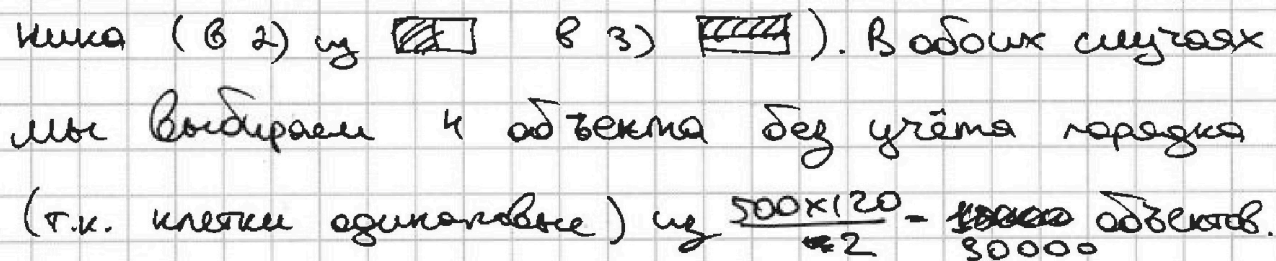 ника (в 2) из в 3) ). В обоих случаях
мы выбираем 4 объекта без учёта порядка
(т.к. клетки одинаковые) из 500×120/2 = 30000 объектов.